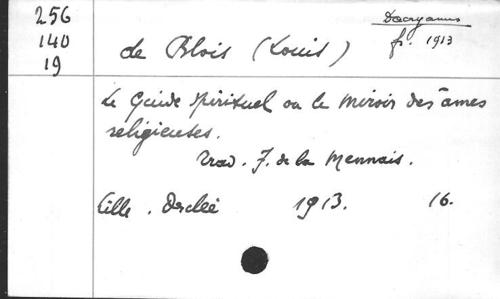 256
140
19
de Blois (Louis)
Dacryanus
fr. 1913
Le Guide spirituel ou le miroir des âmes
religieuses.
Trad. F. de la Mennais.
Lille. Desclée 1913. 16.